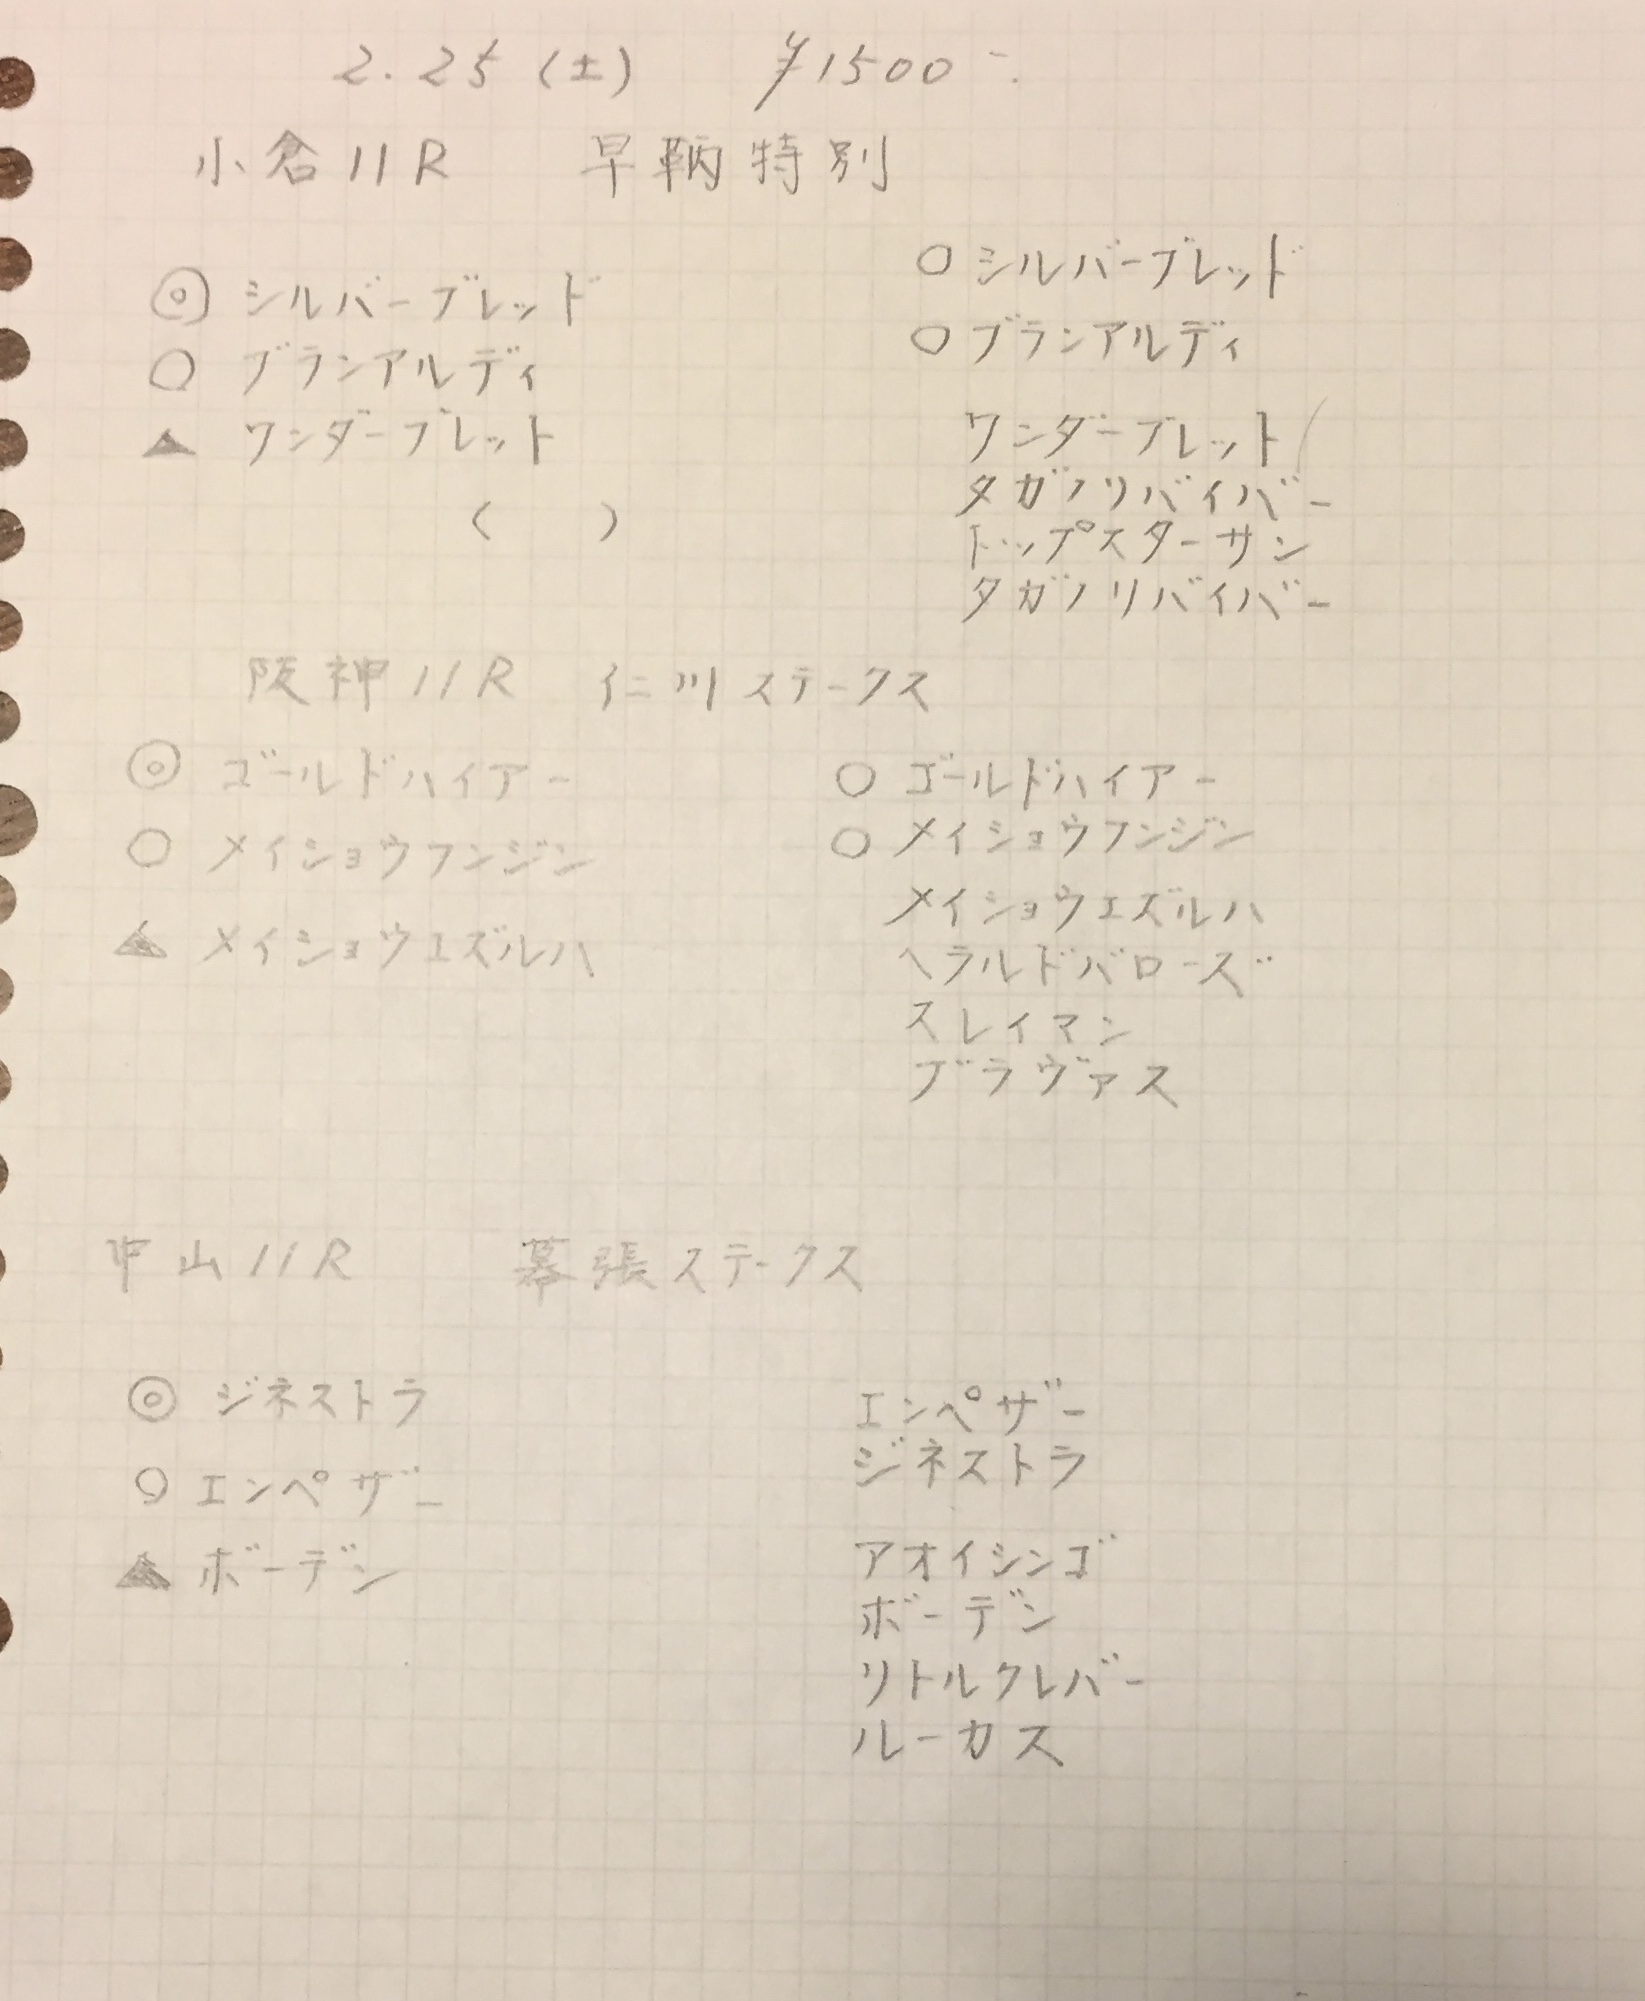 2.25(土) ¥1500-.
小倉11R 早鞆特別
◎ シルバーブレッド
○ ブランアルディ
▲ ワンダーブレット
( )
○ シルバーブレッド
○ ブランアルディ
ワンダーブレット
タガノリバイバー
トップスターサン
タガノリバイバー
阪神11R 仁川ステークス
◎ ゴールドハイアー
○ メイショウフンジン
▲ メイショウエズルハ
○ ゴールドハイアー
○ メイショウフンジン
メイショウエズルハ
ヘラルドバローズ
スレイマン
ブラヴァス
中山11R 幕張ステークス
◎ ジネストラ
○ エンペザー
▲ ボーデン
エンペザー
ジネストラ
アオイシンゴ
ボーデン
リトルクレバー
ルーカス